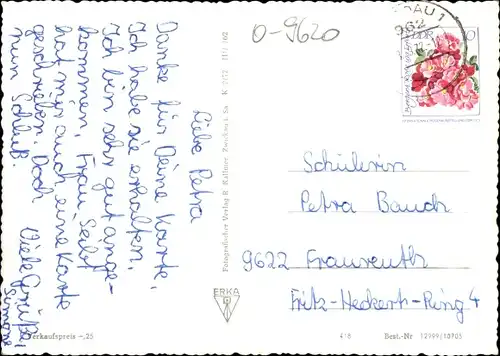 O-9620
DAU 1
962
DDR
Liebe Petra
Danke für Deine Karte,
Ich habe sie erhalten.
Ich bin sehr gut ange-
kommen. Frau Seibt
hat mir auch eine Karte
geschrieben. Doch
nun Schluß
Viele Grüße
Simone
Schülerin
Petra Bauch
9622 Fraureuth
Fritz-Heckert-Ring 4
Fotografischer Verlag R. Kallmer Zwickau i. Sa.
ERKA
erkaufspreis -,25
418
Best.-Nr 12999/10705